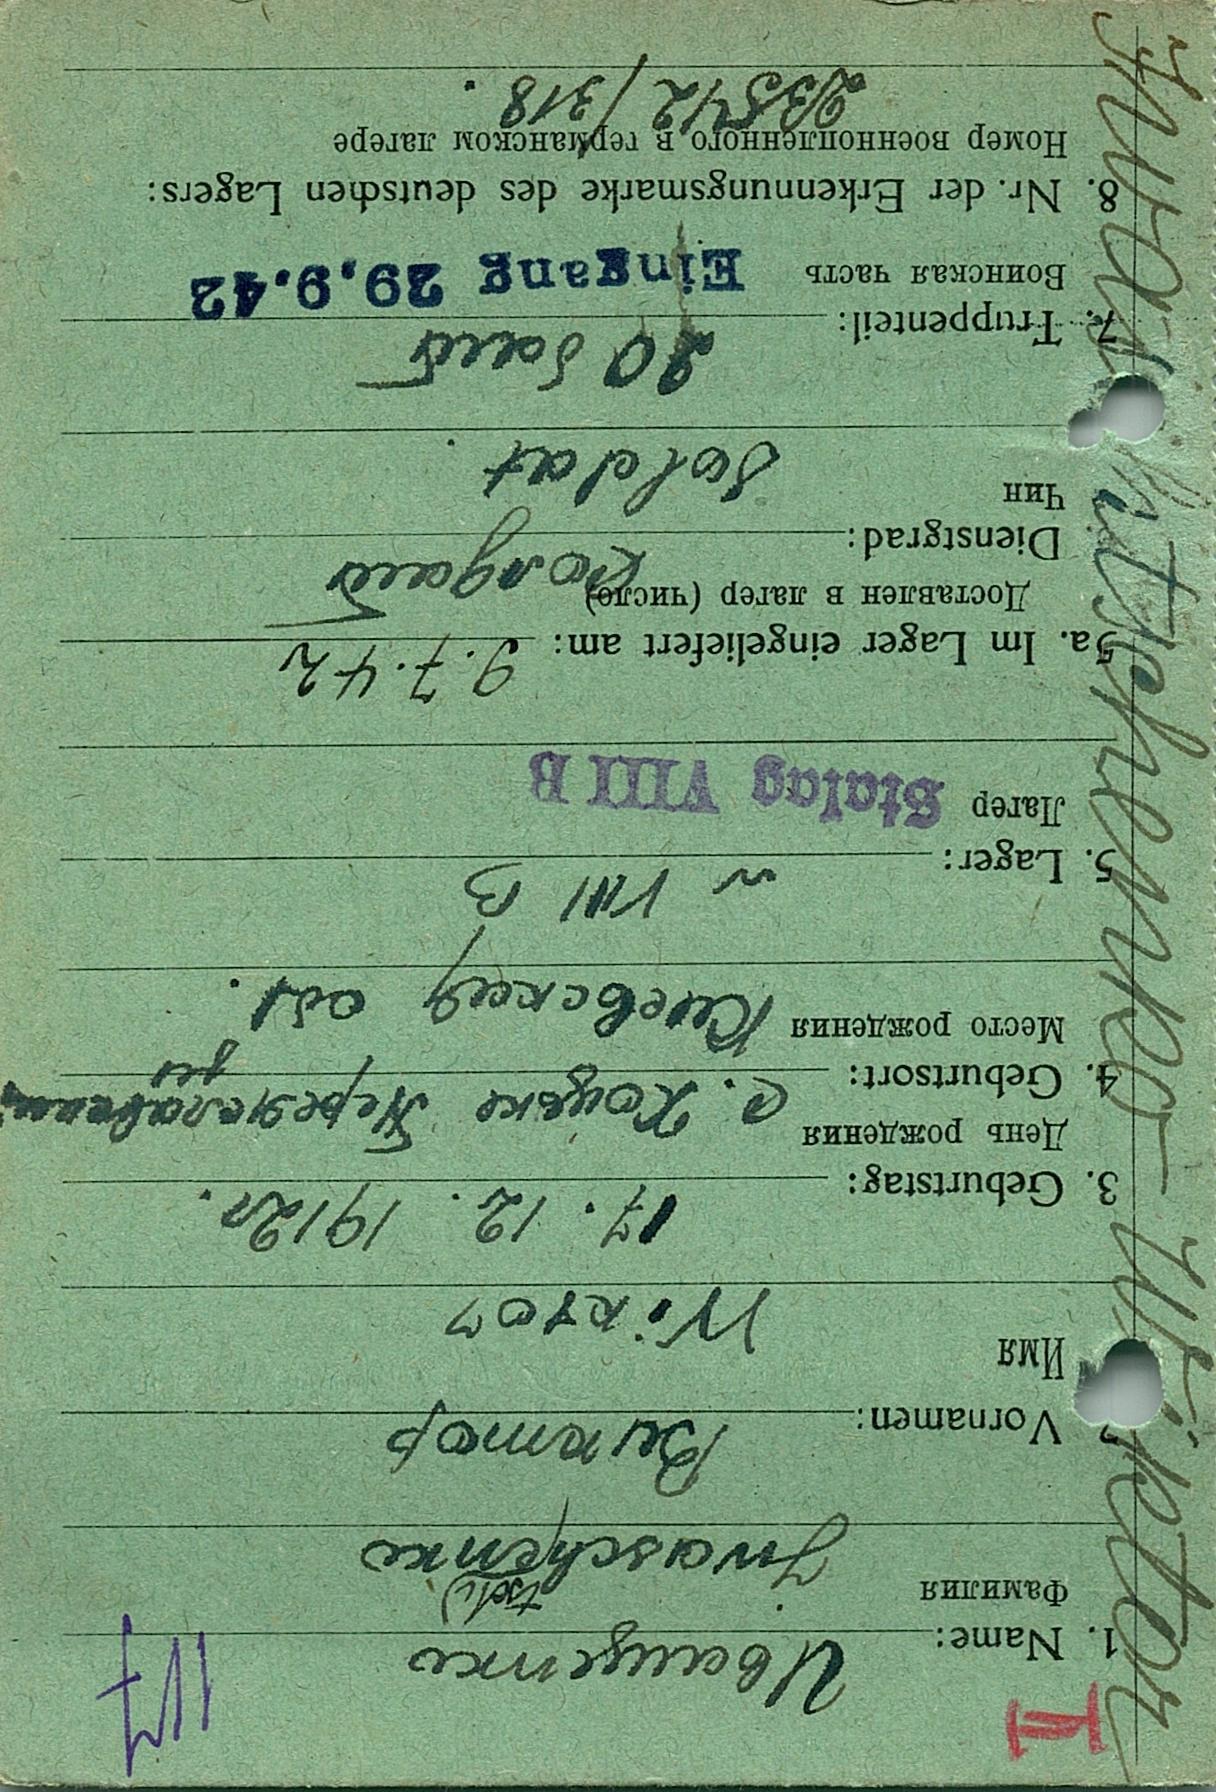 II
117
1. Name: Иващенко
Фамилия
(tsch)
Iwaschenko
Vornamen: Виктор
Имя
Wiktor
3. Geburtstag: 17. 12. 1912г.
День рождения
4. Geburtsort: с. Хоцьке Переяславский
Место рождения Киевская обл.
VIII B
5. Lager:
Лагер Stalag VIII B
5a. Im Lager eingeliefert am: 9.7.42
Доставлен в лагер (число)
Dienstgrad:
Чин Soldat
7. Truppenteil: 20
Воинская часть Eingang 29.9.42
8. Nr. der Erkennungsmarke des deutschen Lagers:
Номер военнопленного в германском лагере
23542/318.
Wiktor